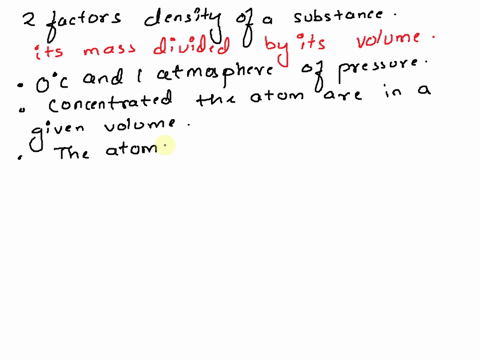 2 factors density of a substance.
its mass divided by its volume.
• 0°c and 1 atmosphere of pressure.
• concentrated the atom are in a
given volume.
• The atom